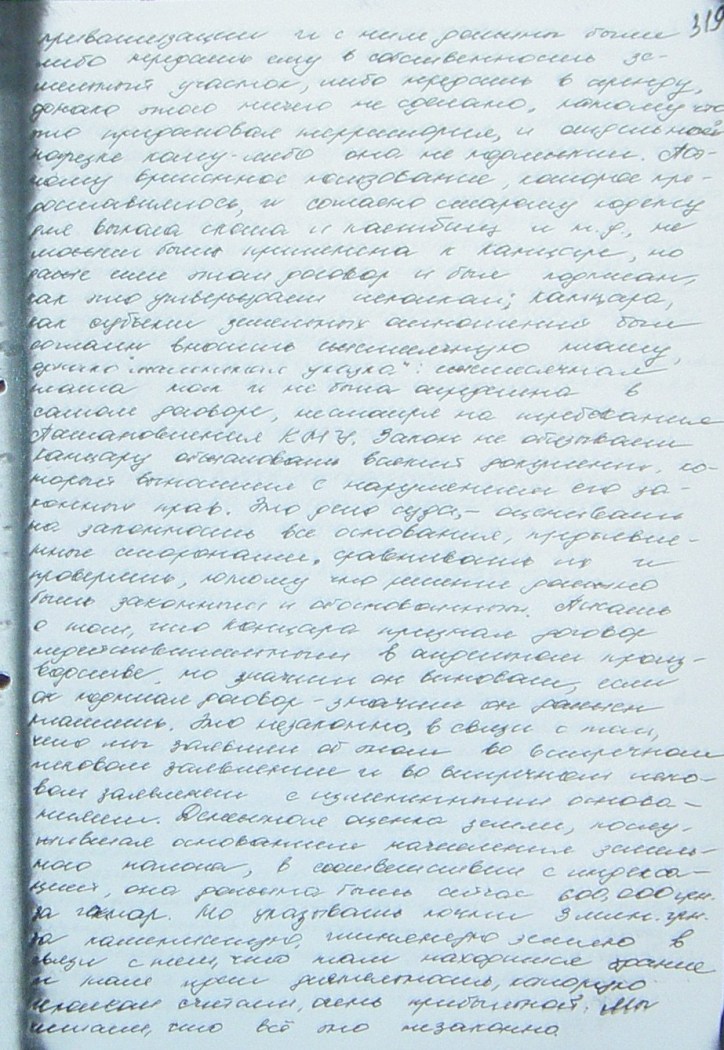 319
приватизации и с ним должны были
либо передать ему в собственность зе-
мельный участок, либо передать в аренду,
однако этого ничего не сделано, потому что
это придомовая территория, и отдельной
нарезке кому-либо она не подлежит. Поэ-
тому временное пользование, которое пре-
доставлялось, и согласно старому кодексу
для выпаса скота и пастбищ и т.д., не
может быть применена к Канцара, но
даже если этот договор и был подписан,
как это утверждает исполком; Канцара,
как субъект земельных отношений был
согласен вносить ежемесячную плату,
однако ежемесячная
плата так и не была определена в
самом договоре, несмотря на требования
Постановления КМУ. Закон не обязывает
Канцару обжаловать всякий документ, ко-
торый вынесен с нарушением его за-
конных прав. Это дело суда, – оценивать
на законность все основания, предъявлен-
ные сторонами, сравнивать их и
проверять, потому что решение должно
быть законным и обоснованным. Писать
о том, что Канцара признал договор
недействительным в отдельном произ-
водстве, но значит он виноват, если
он подписал договор – значит он должен
платить. Это незаконно, в связи с тем,
что мы заявляем об этом во встречном
исковом заявлении и во встречном иско-
вом заявлении с измененными основа-
ниями. Денежная оценка земли, послу-
жившая основанием начисления земель-
ного налога, в соответствии с индекса-
цией, она должна быть сейчас 600,000 грн.
за гектар. Но указывать почти 3 млн. грн.
за землю в
связи с тем, что там находится здание
и там идет деятельность, которую
исполком считает, очень прибыльной. Мы
считаем, что всё это незаконно.